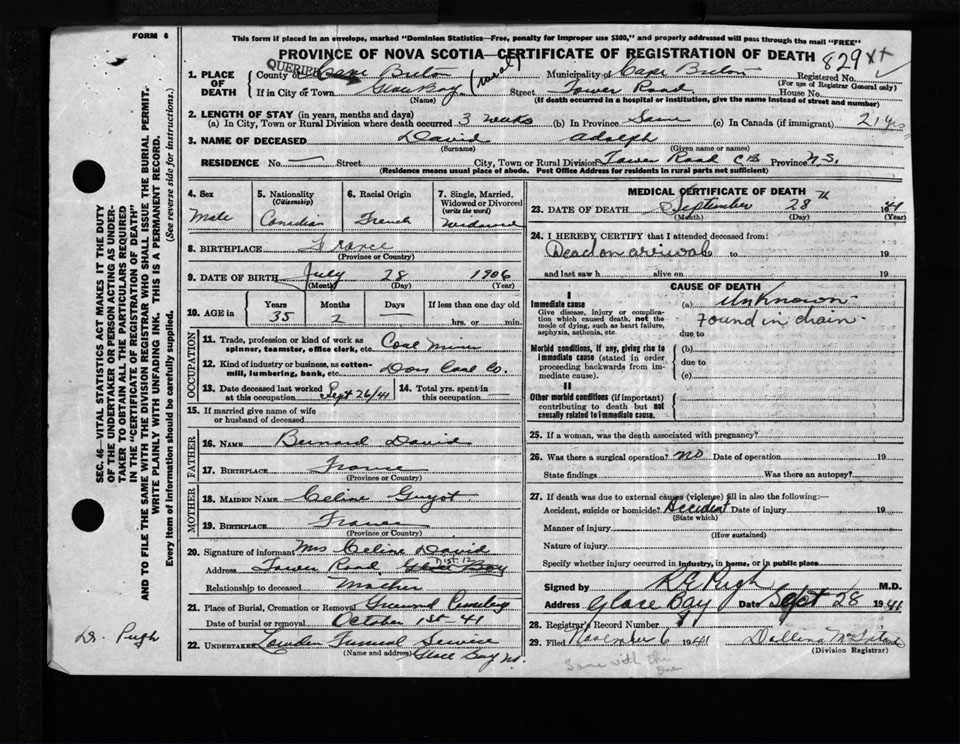 FORM 6
This form if placed in an envelope, marked "Dominion Statistics—Free, penalty for improper use $300," and properly addressed will pass through the mail "FREE"
PROVINCE OF NOVA SCOTIA—CERTIFICATE OF REGISTRATION OF DEATH 829
QUERIED
1. PLACE OF DEATH County of Cape Breton (rural) Municipality of Cape Breton Registered No.
(For use of Registrar General only)
If in City or Town Glace Bay Street Tower Road House No.
(Name) (If death occurred in a hospital or institution, give the name instead of street and number)
2. LENGTH OF STAY (in years, months and days)
(a) In City, Town or Rural Division where death occurred 3 weeks (b) In Province Same (c) In Canada (if immigrant) 21 yrs
3. NAME OF DECEASED David Adolph
(Surname) (Given name or names)
RESIDENCE No. — Street City, Town or Rural Division Tower Road CB Province N.S.
(Residence means usual place of abode. Post Office Address for residents in rural parts not sufficient)
4. Sex 5. Nationality (Citizenship) 6. Racial Origin 7. Single, Married, Widowed or Divorced (write the word)
Male Canadian French Widower
8. BIRTHPLACE France
(Province or Country)
9. DATE OF BIRTH July 28 1906
(Month) (Day) (Year)
10. AGE in Years Months Days If less than one day old
35 2 — hrs. or min.
OCCUPATION
11. Trade, profession or kind of work as spinner, teamster, office clerk, etc. Coal Miner
12. Kind of industry or business, as cotton-mill, lumbering, bank, etc. Dom Coal Co.
13. Date deceased last worked at this occupation Sept 26/41 14. Total yrs. spent in this occupation —
15. If married give name of wife or husband of deceased
FATHER
16. NAME Bernard David
17. BIRTHPLACE France
(Province or Country)
MOTHER
18. MAIDEN NAME Celine Guyot
19. BIRTHPLACE France
(Province or Country)
20. Signature of informant Mrs Celine David
Address Tower Road DIST. 12 Glace Bay
Relationship to deceased Mother
21. Place of Burial, Cremation or Removal Greenwood Cemetery
Date of burial or removal October 1st-41
22. UNDERTAKER Funeral Service
(Name and address) Glace Bay NS.
MEDICAL CERTIFICATE OF DEATH
23. DATE OF DEATH September 28th 1941
(Month) (Day) (Year)
24. I HEREBY CERTIFY that I attended deceased from:
Dead on arrival to 19
and last saw h alive on 19
CAUSE OF DEATH
I
Immediate cause (a) Unknown
Give disease, injury or complication which caused death, not the mode of dying, such as heart failure, asphyxia, asthenia, etc.
Found in drain
due to
Morbid conditions, if any, giving rise to immediate cause (stated in order proceeding backwards from immediate cause).
(b)
due to
(c)
II
Other morbid conditions (if important) contributing to death but not causally related to immediate cause.
25. If a woman, was the death associated with pregnancy?
26. Was there a surgical operation? no Date of operation 19
State findings Was there an autopsy?
27. If death was due to external causes (violence) fill in also the following:—
Accident, suicide or homicide? Accident Date of injury 19
(State which)
Manner of injury
(How sustained)
Nature of injury
Specify whether injury occurred in industry, in home, or in public place
Signed by Pugh M.D.
Address Glace Bay Date Sept 28 1941
28. Registrar's Record Number
29. Filed November 6 1941
(Division Registrar)
Same with the
SEC. 46—VITAL STATISTICS ACT MAKES IT THE DUTY
OF THE UNDERTAKER OR PERSON ACTING AS UNDER-
TAKER TO OBTAIN ALL THE PARTICULARS REQUIRED
IN THE "CERTIFICATE OF REGISTRATION OF DEATH"
AND TO FILE THE SAME WITH THE DIVISION REGISTRAR WHO SHALL ISSUE THE BURIAL PERMIT.
WRITE PLAINLY WITH UNFADING INK. THIS IS A PERMANENT RECORD.
Every item of information should be carefully supplied. (See reverse side for instructions.)
Dr. Pugh